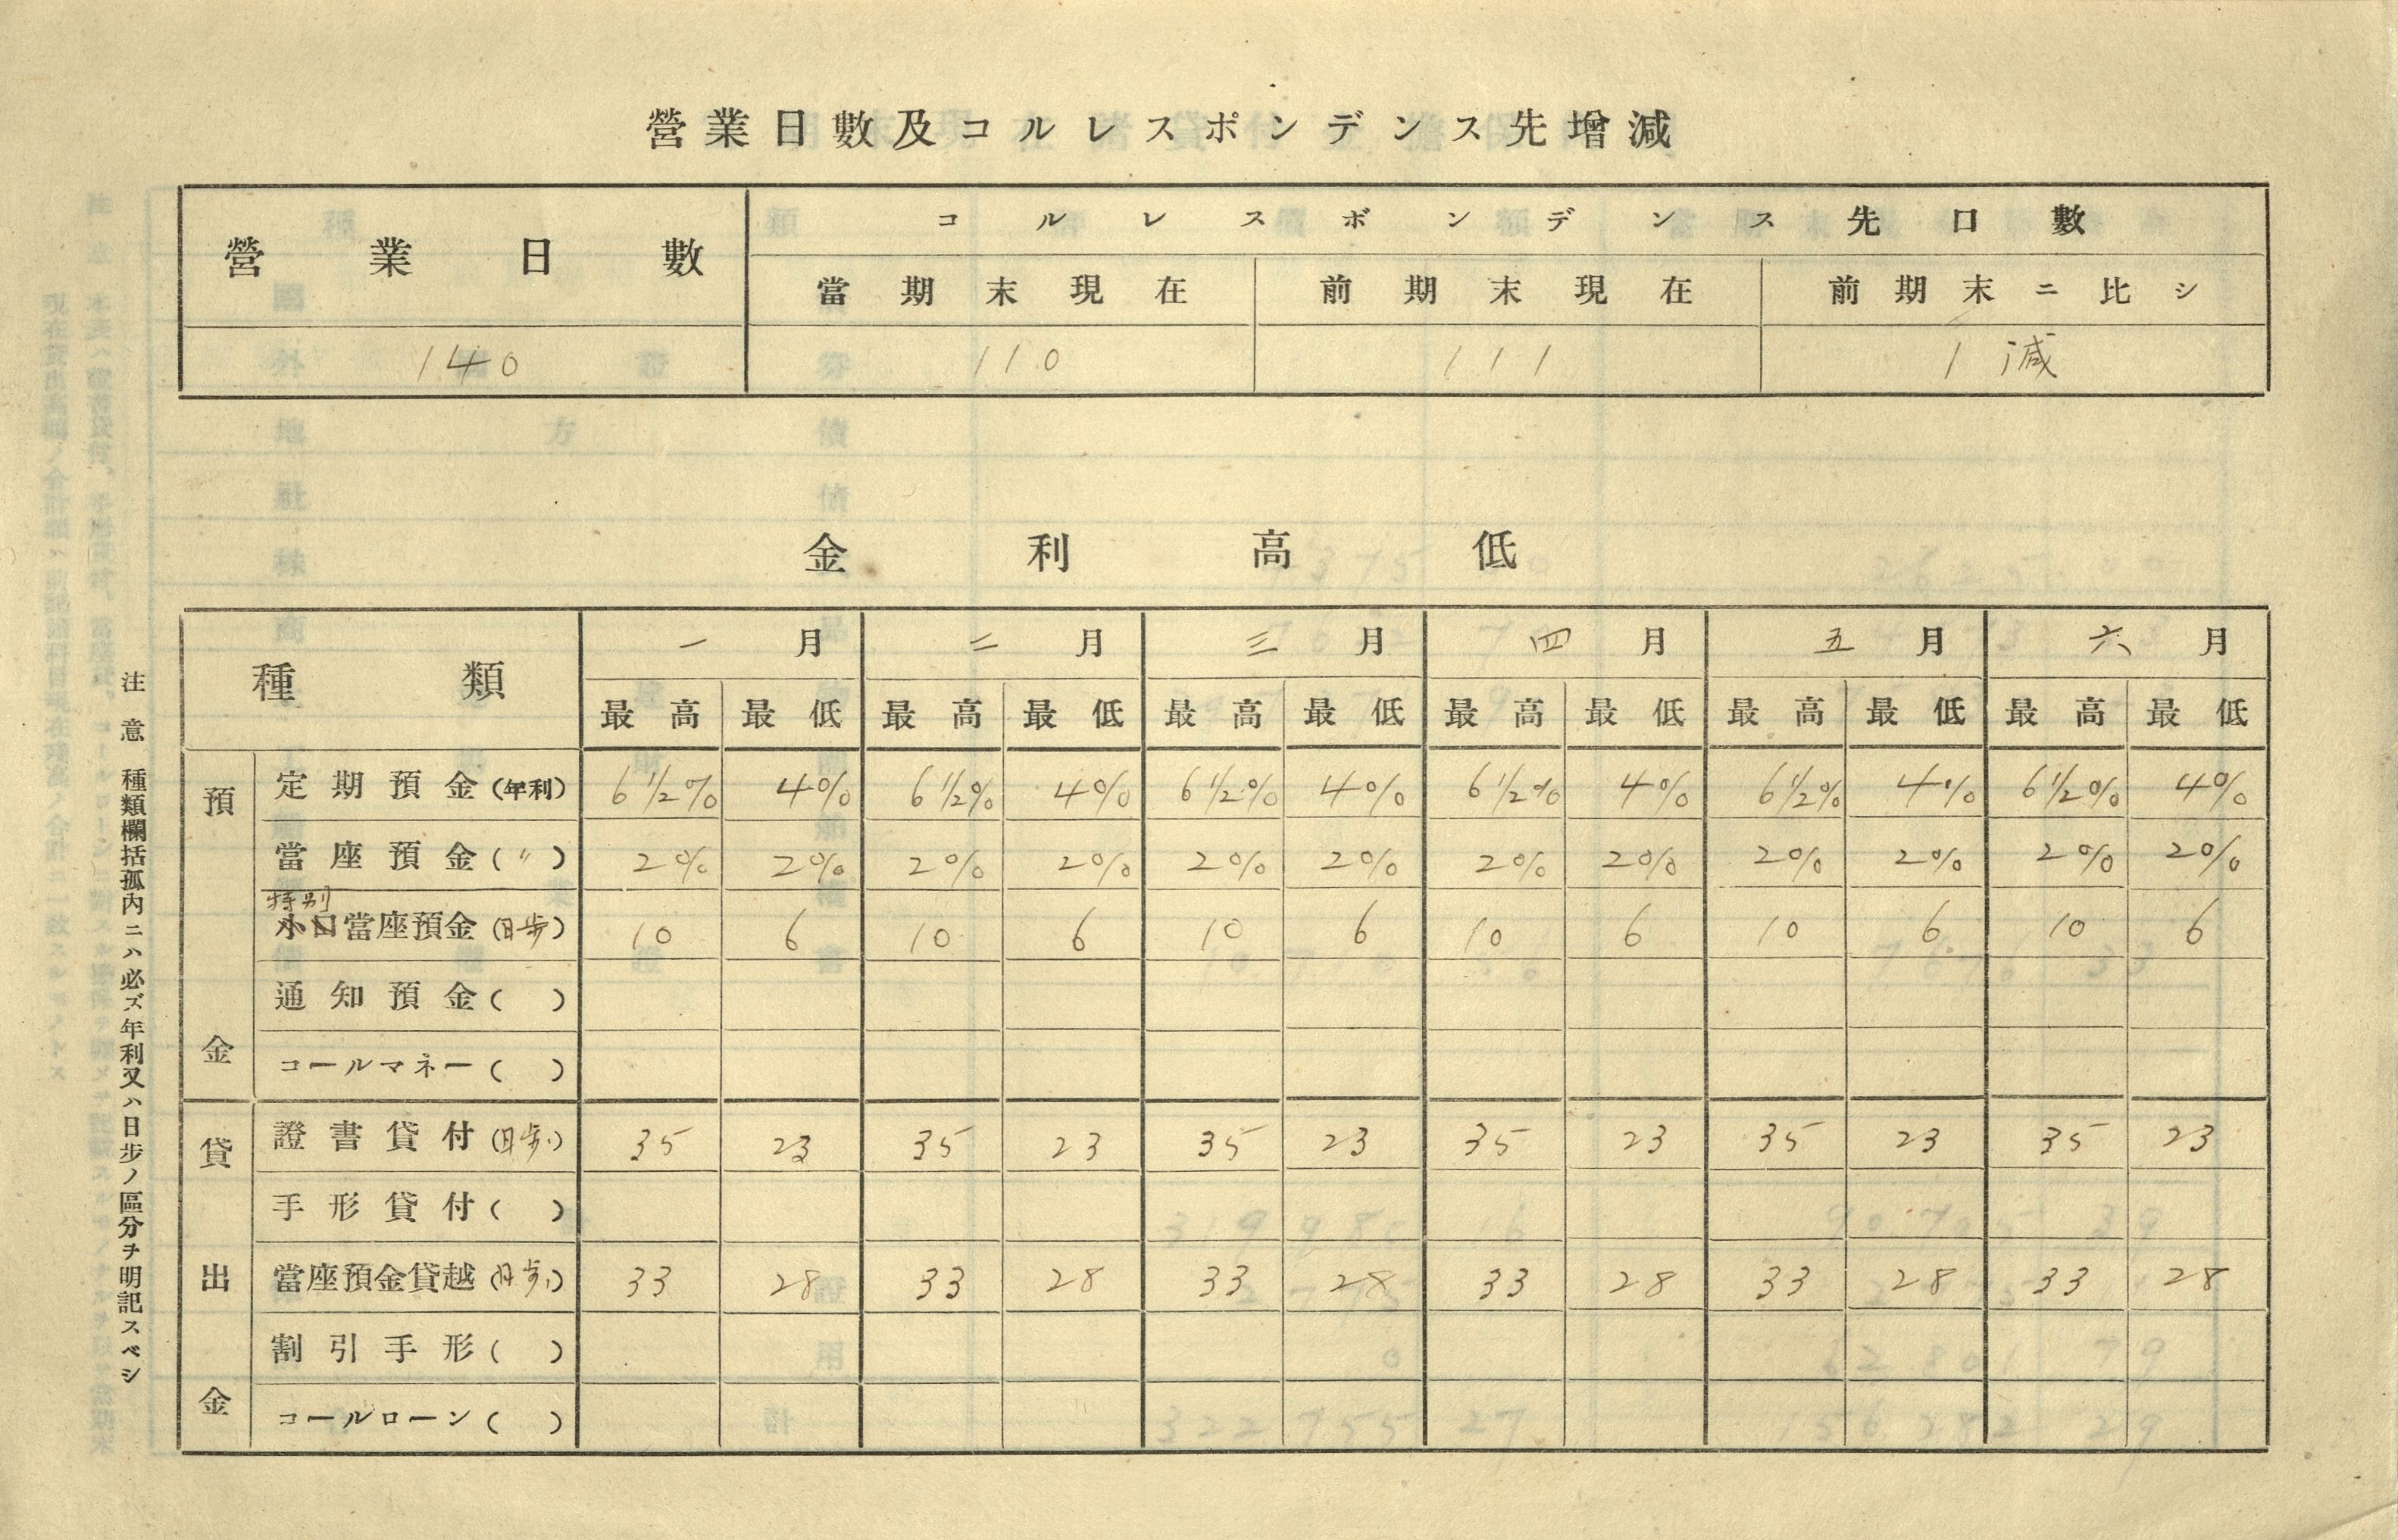 營業日數及コルレスポンデンス先增減
營業日數 コルレスポンデンス先口數
當期末現在 前期末現在 前期末ニ比シ
140 110 111 1減
金利高低
種類 一月 二月 三月 四月 五月 六月
最高 最低 最高 最低 最高 最低 最高 最低 最高 最低 最高 最低
預金
定期預金(年利) 6 1/2% 4% 6 1/2% 4% 6 1/2% 4% 6 1/2% 4% 6 1/2% 4% 6 1/2% 4%
當座預金(〃) 2% 2% 2% 2% 2% 2% 2% 2% 2% 2% 2% 2%
特別
小口當座預金(日步) 10 6 10 6 10 6 10 6 10 6 10 6
通知預金( )
コールマネー( )
貸出金
證書貸付(日步) 35 23 35 23 35 23 35 23 35 23 35 23
手形貸付( )
當座預金貸越(日步) 33 28 33 28 33 28 33 28 33 28 33 28
割引手形( )
コールローン( )
注意 種類欄括孤內ニハ必ズ年利又ハ日步ノ區分ヲ明記スベシ